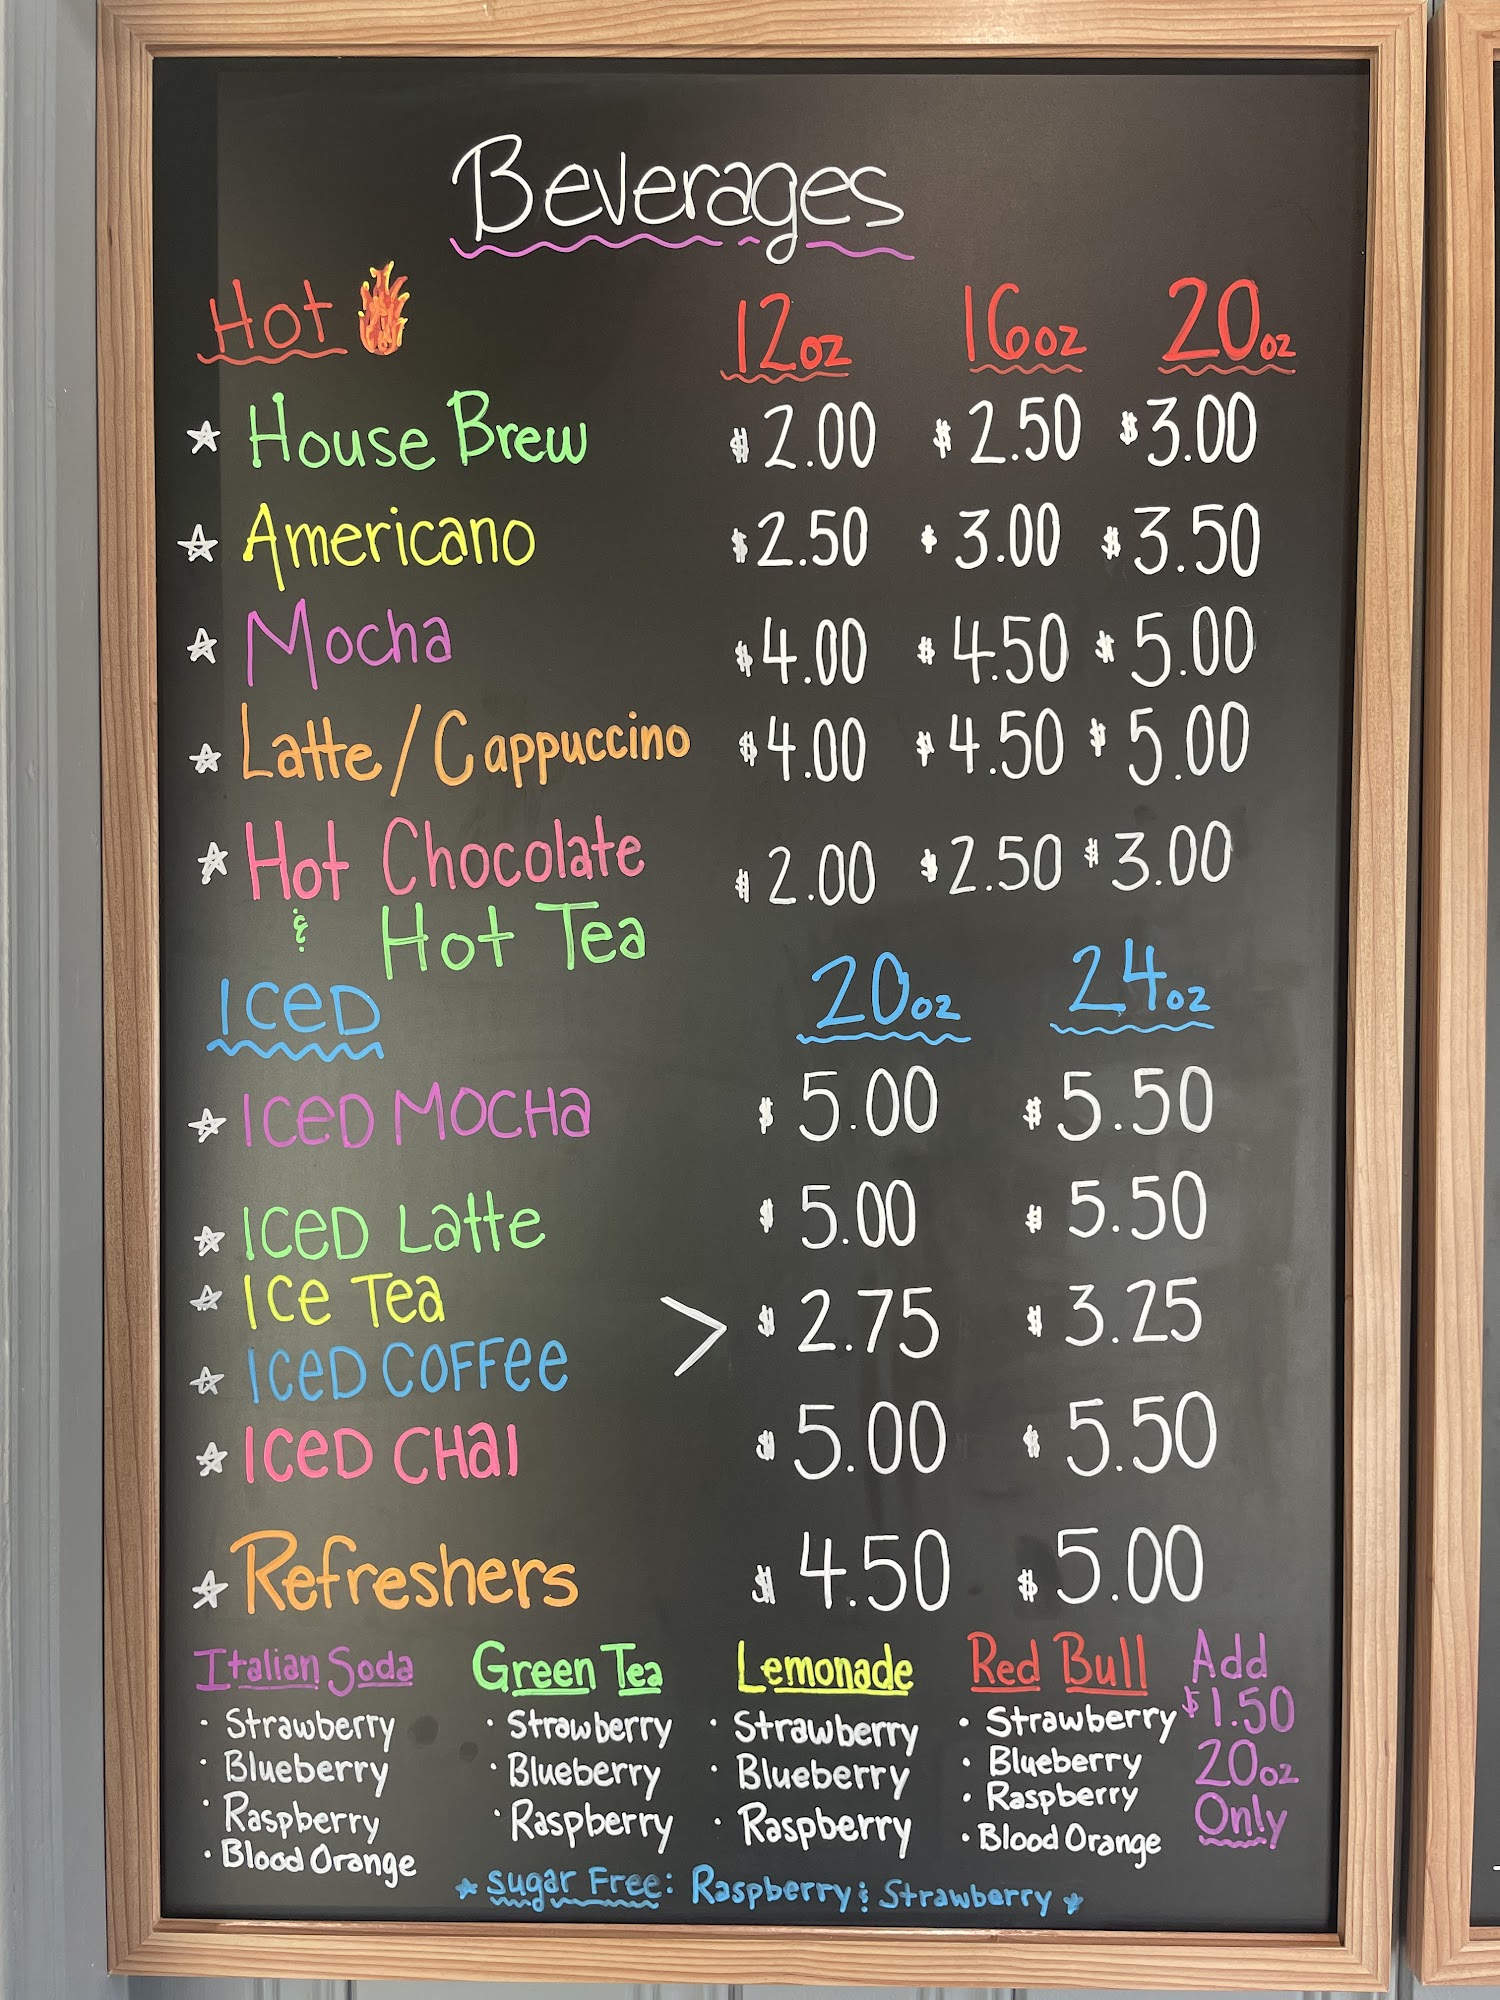 Beverages
Hot 12oz 16oz 20oz
☆ House Brew $2.00 $2.50 $3.00
☆ Americano $2.50 $3.00 $3.50
☆ Mocha $4.00 $4.50 $5.00
☆ Latte/Cappuccino $4.00 $4.50 $5.00
☆ Hot Chocolate $2.00 $2.50 $3.00
& Hot Tea
Iced 20oz 24oz
☆ Iced Mocha $5.00 $5.50
☆ Iced Latte $5.00 $5.50
☆ Ice Tea
> $2.75 $3.25
☆ Iced Coffee
☆ Iced Chai $5.00 $5.50
☆ Refreshers $4.50 $5.00
Italian Soda
· Strawberry
· Blueberry
· Raspberry
· Blood Orange
Green Tea
· Strawberry
· Blueberry
· Raspberry
Lemonade
· Strawberry
· Blueberry
· Raspberry
Red Bull
· Strawberry
· Blueberry
· Raspberry
· Blood Orange
Add
$1.50
20oz
Only
☆ Sugar Free: Raspberry & Strawberry ☆